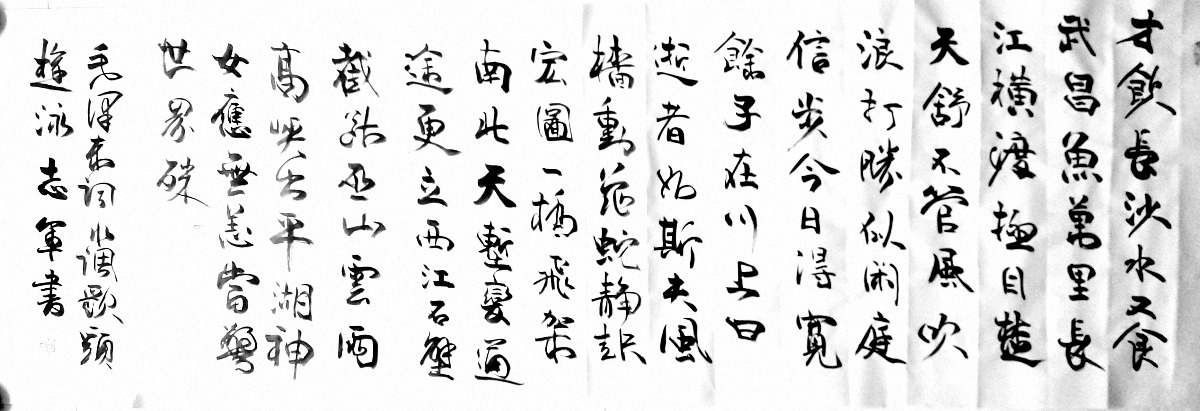 才飲長沙水又食
武昌魚萬里長
江橫渡極目楚
天舒不管風吹
浪打勝似闲庭
信步今日得寬
餘子在川上曰
逝者如斯夫風
檣動龜蛇静起
宏圖一橋飛架
南北天塹變通
途更立西江石壁
截断巫山雲雨
高峽出平湖神
女應無恙當驚
世界殊
毛澤東詞水调歌頭
游泳志軍書